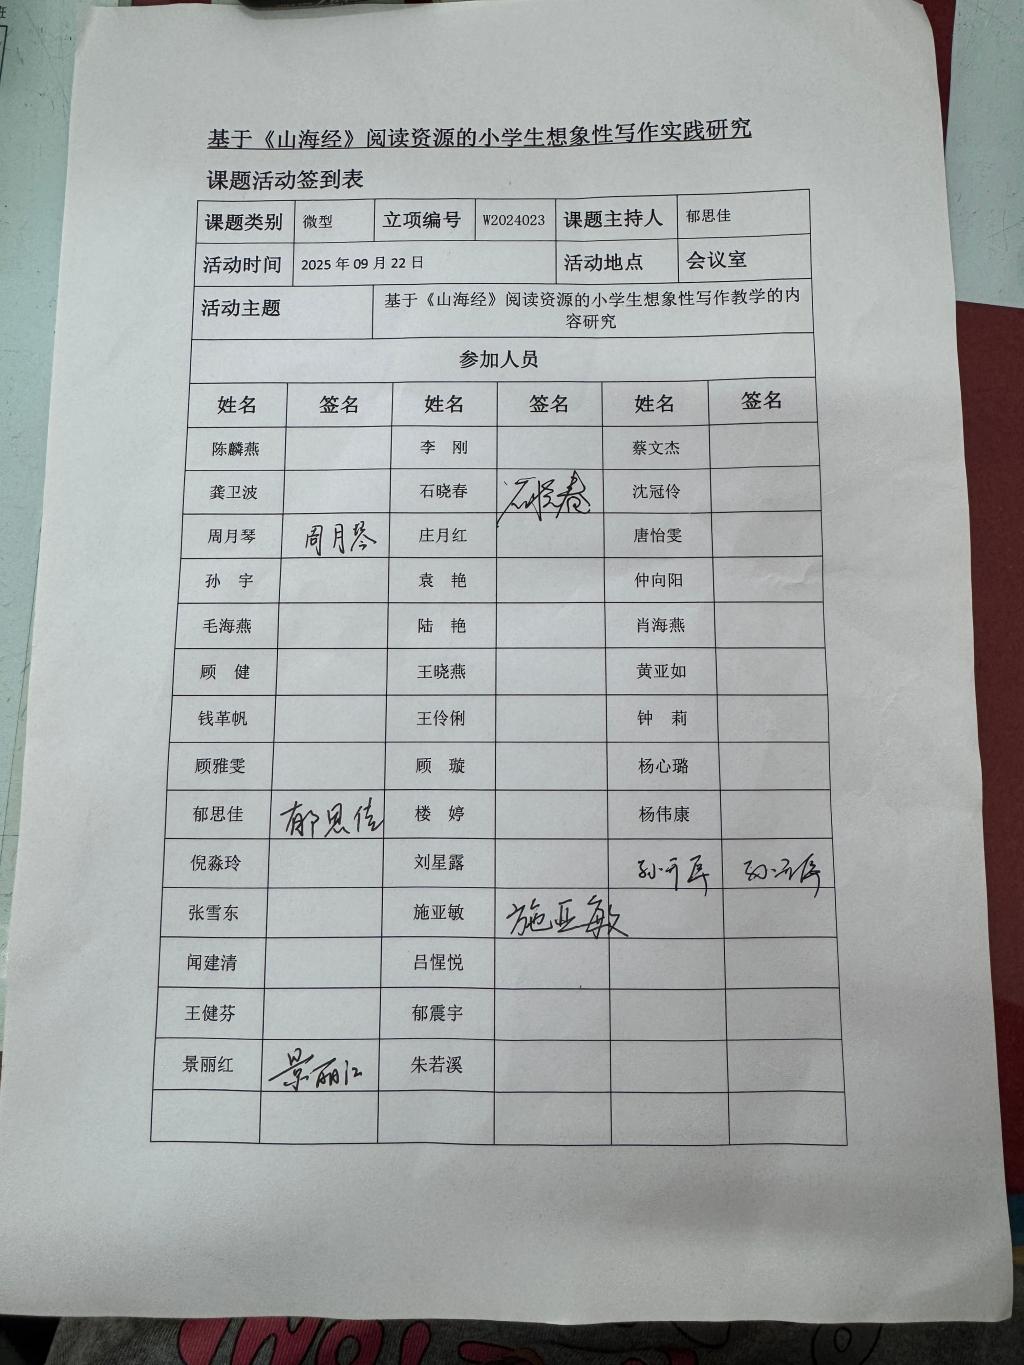 基于《山海经》阅读资源的小学生想象性写作实践研究
课题活动签到表
课题类别 微型 立项编号 W2024023 课题主持人 郁思佳
活动时间 2025 年 09 月 22 日 活动地点 会议室
活动主题 基于《山海经》阅读资源的小学生想象性写作教学的内
容研究
参加人员
姓名 签名 姓名 签名 姓名 签名
陈麟燕 李 刚 蔡文杰
龚卫波 石晓春 石晓春 沈冠伶
周月琴 周月琴 庄月红 唐怡雯
孙 宇 袁 艳 仲向阳
毛海燕 陆 艳 肖海燕
顾 健 王晓燕 黄亚如
钱革帆 王伶俐 钟 莉
顾雅雯 顾 璇 杨心璐
郁思佳 郁思佳 楼 婷 杨伟康
倪淼玲 刘星露
张雪东 施亚敏 施亚敏
闻建清 吕惺悦
王健芬 郁震宇
景丽红 景丽红 朱若溪